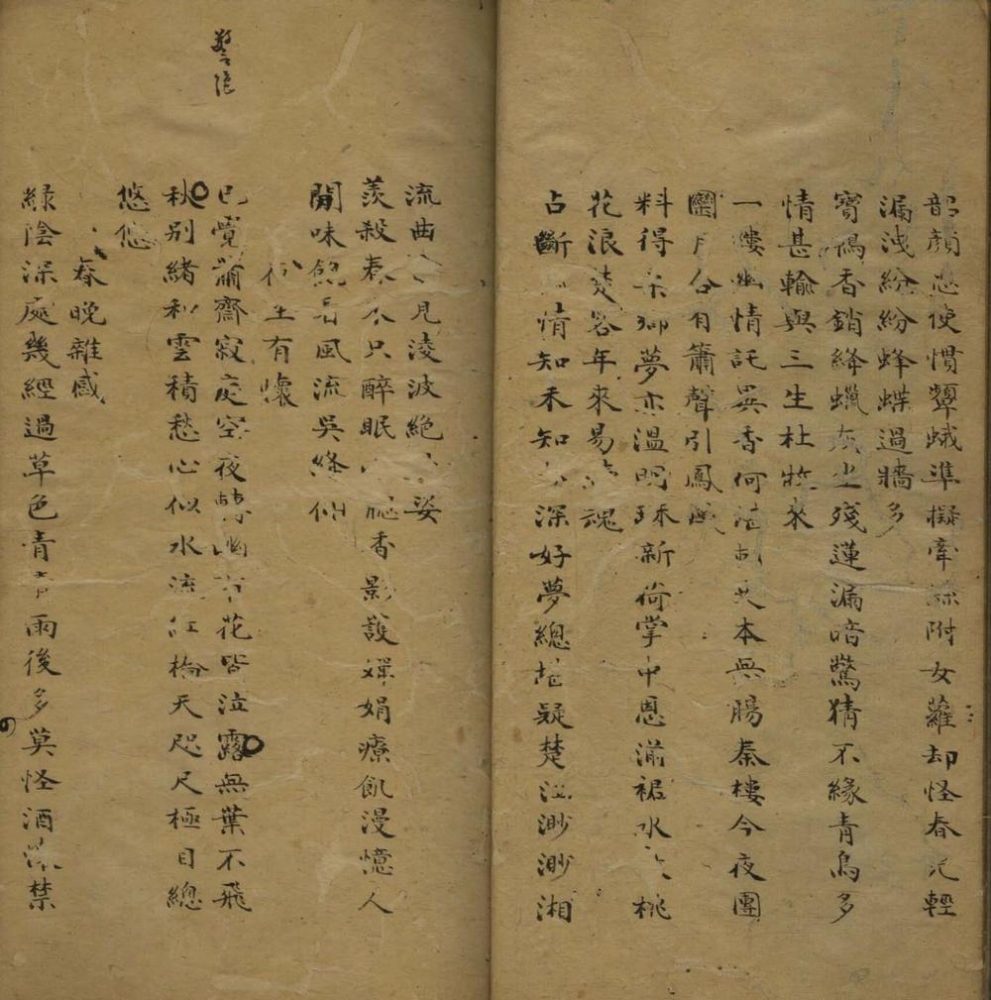 韶顏怎使慣顰蛾準擬牽蘿附女蘿却怪春光輕
漏洩紛紛蜂蝶過牆多
寶鴨香銷絳蠟灰坐殘蓮漏暗驚猜不緣青鳥多
情甚輸與三生杜牧來
一縷幽情託異香何本無腸秦樓今夜團
圞月合有簫聲引鳳
料得柔鄉夢亦溫明珠新荷掌中恩湔裙水桃
花浪楚客年來易魂
占斷情知未知深好夢總疑楚江渺渺湘
流曲見凌波絕妥
羨殺春不只醉眠香影護嬋娟療飢漫憶人
間味風流吳絳仙
有懷
已覺蕭齋寂夜空夜花皆泣露無葉不飛
秋別緒和雲積愁心似水流紅橋天咫尺極目總
悠悠
春晚雜感
綠陰深處幾經過草色青青雨後多莫怪酒禁
警絕